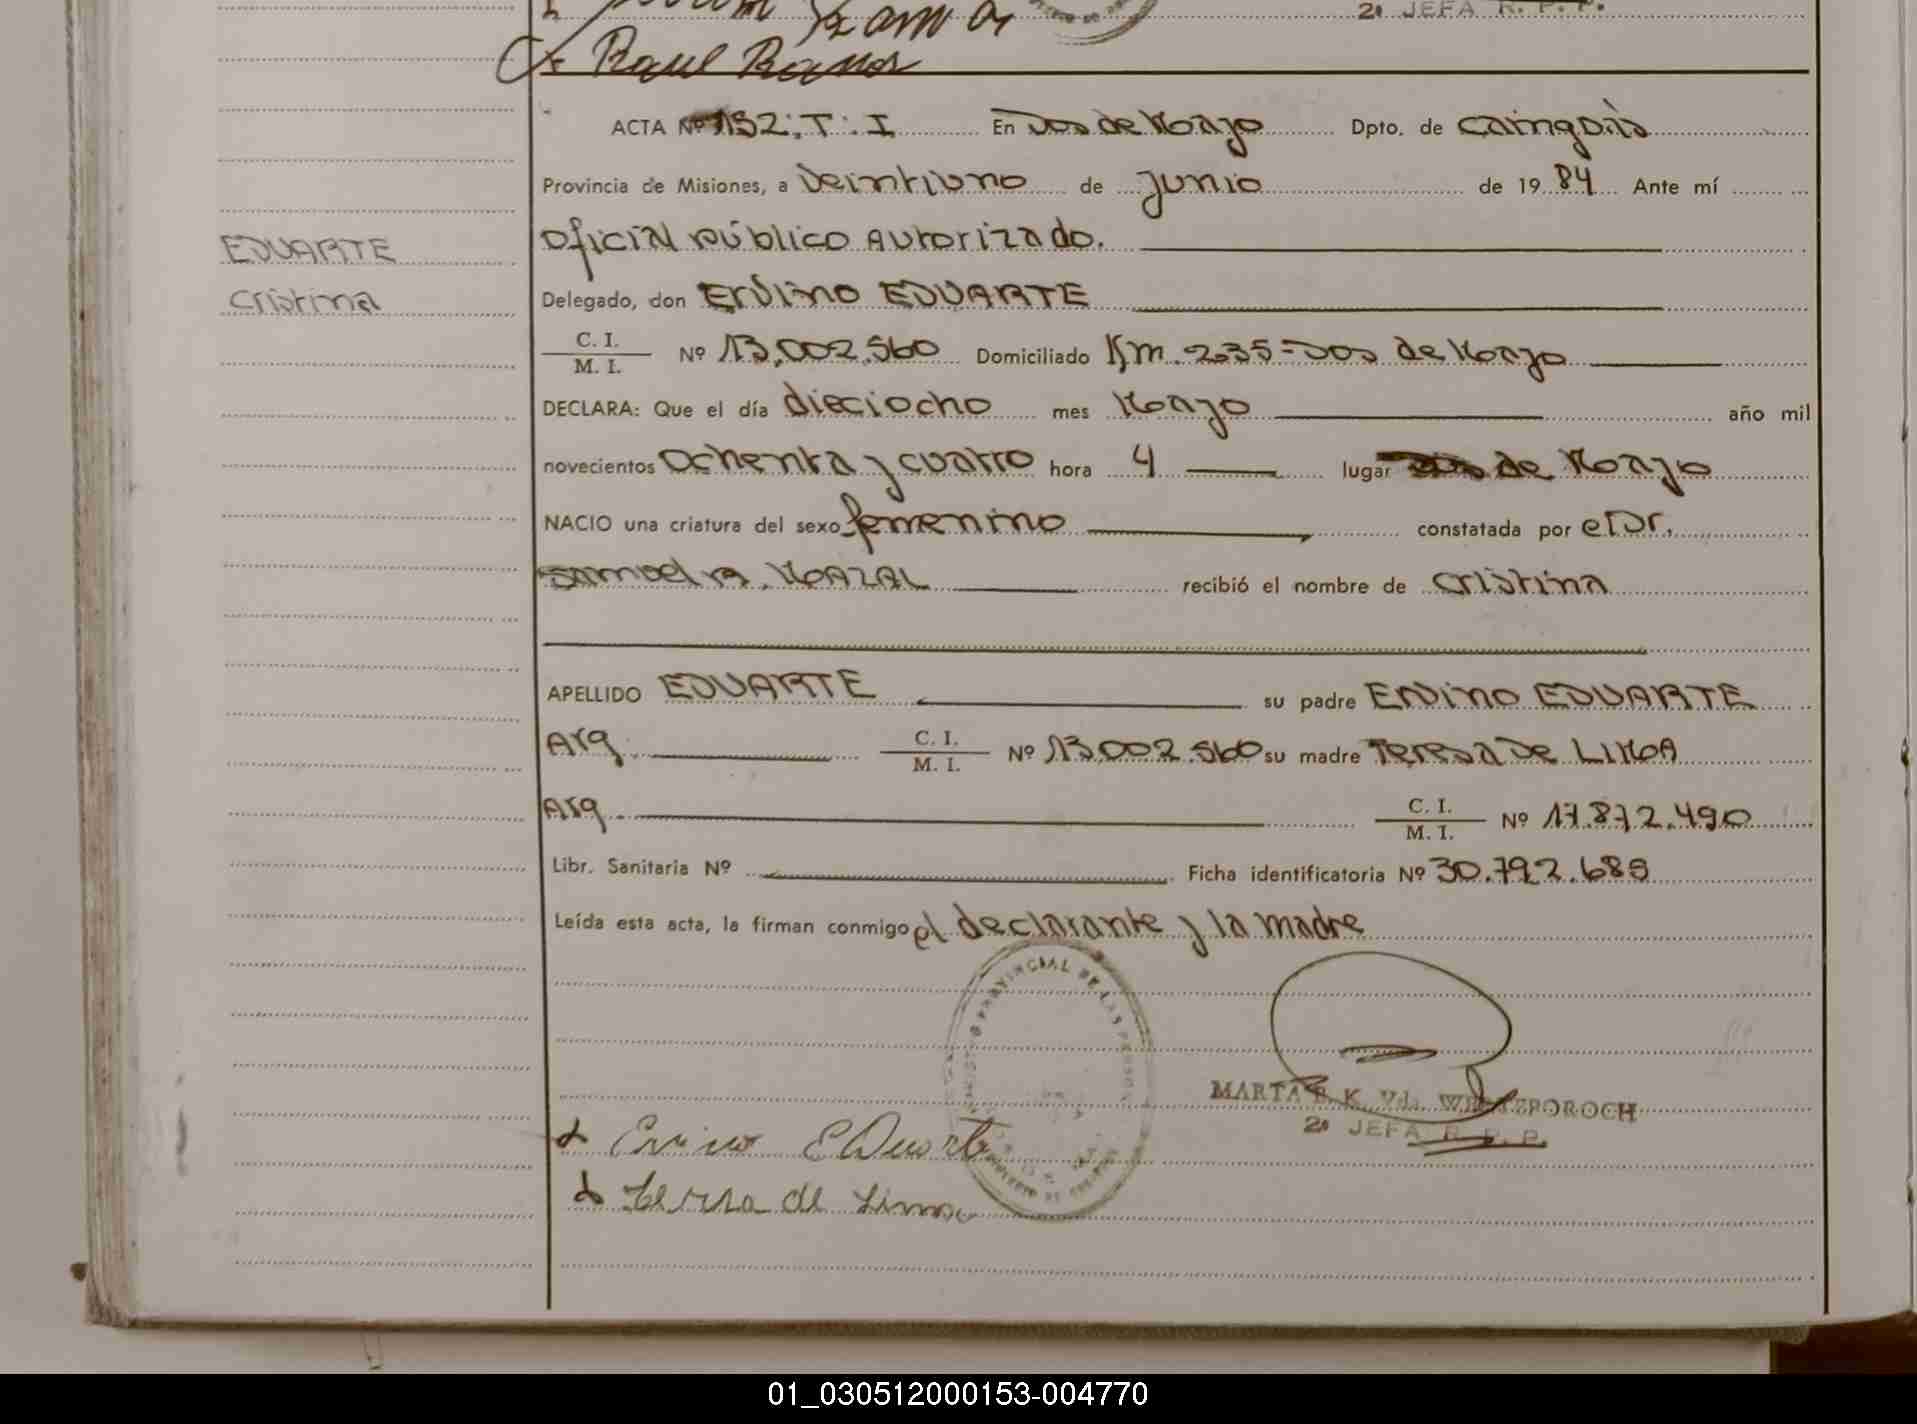 2º JEFA R. P. P.
Raul Ramos
ACTA Nº 152: T: I En Dos de Mayo Dpto. de Cainguás
Provincia de Misiones, a veintiuno de junio de 1984 Ante mí
EDUARTE
Oficial público autorizado.
Cristina
Delegado, don Ervino EDUARTE
C. I.
M. I. Nº 13.002.560 Domiciliado Km. 235-Dos de Mayo
DECLARA: Que el día dieciocho mes Mayo año mil
novecientos ochenta y cuatro hora 4 lugar Dos de Mayo
NACIO una criatura del sexo femenino constatada por el Dr.
Samuel R. MAZAL recibió el nombre de Cristina
APELLIDO EDUARTE su padre Ervino EDUARTE
Arg. C. I.
M. I. Nº 13.002.560 su madre Teresa De LIMA
Arg. C. I.
M. I. Nº 17.872.490
Libr. Sanitaria Nº Ficha identificatoria Nº 30.792.685
Leída esta acta, la firman conmigo el declarante y la madre
PROVINCIAL DE LAS PERSONAS
MARTA B. K. Vda. WESTEPOROCH
2º JEFA R. P. P.
Ervino EDuarte
Teresa de Lima
01_030512000153-004770